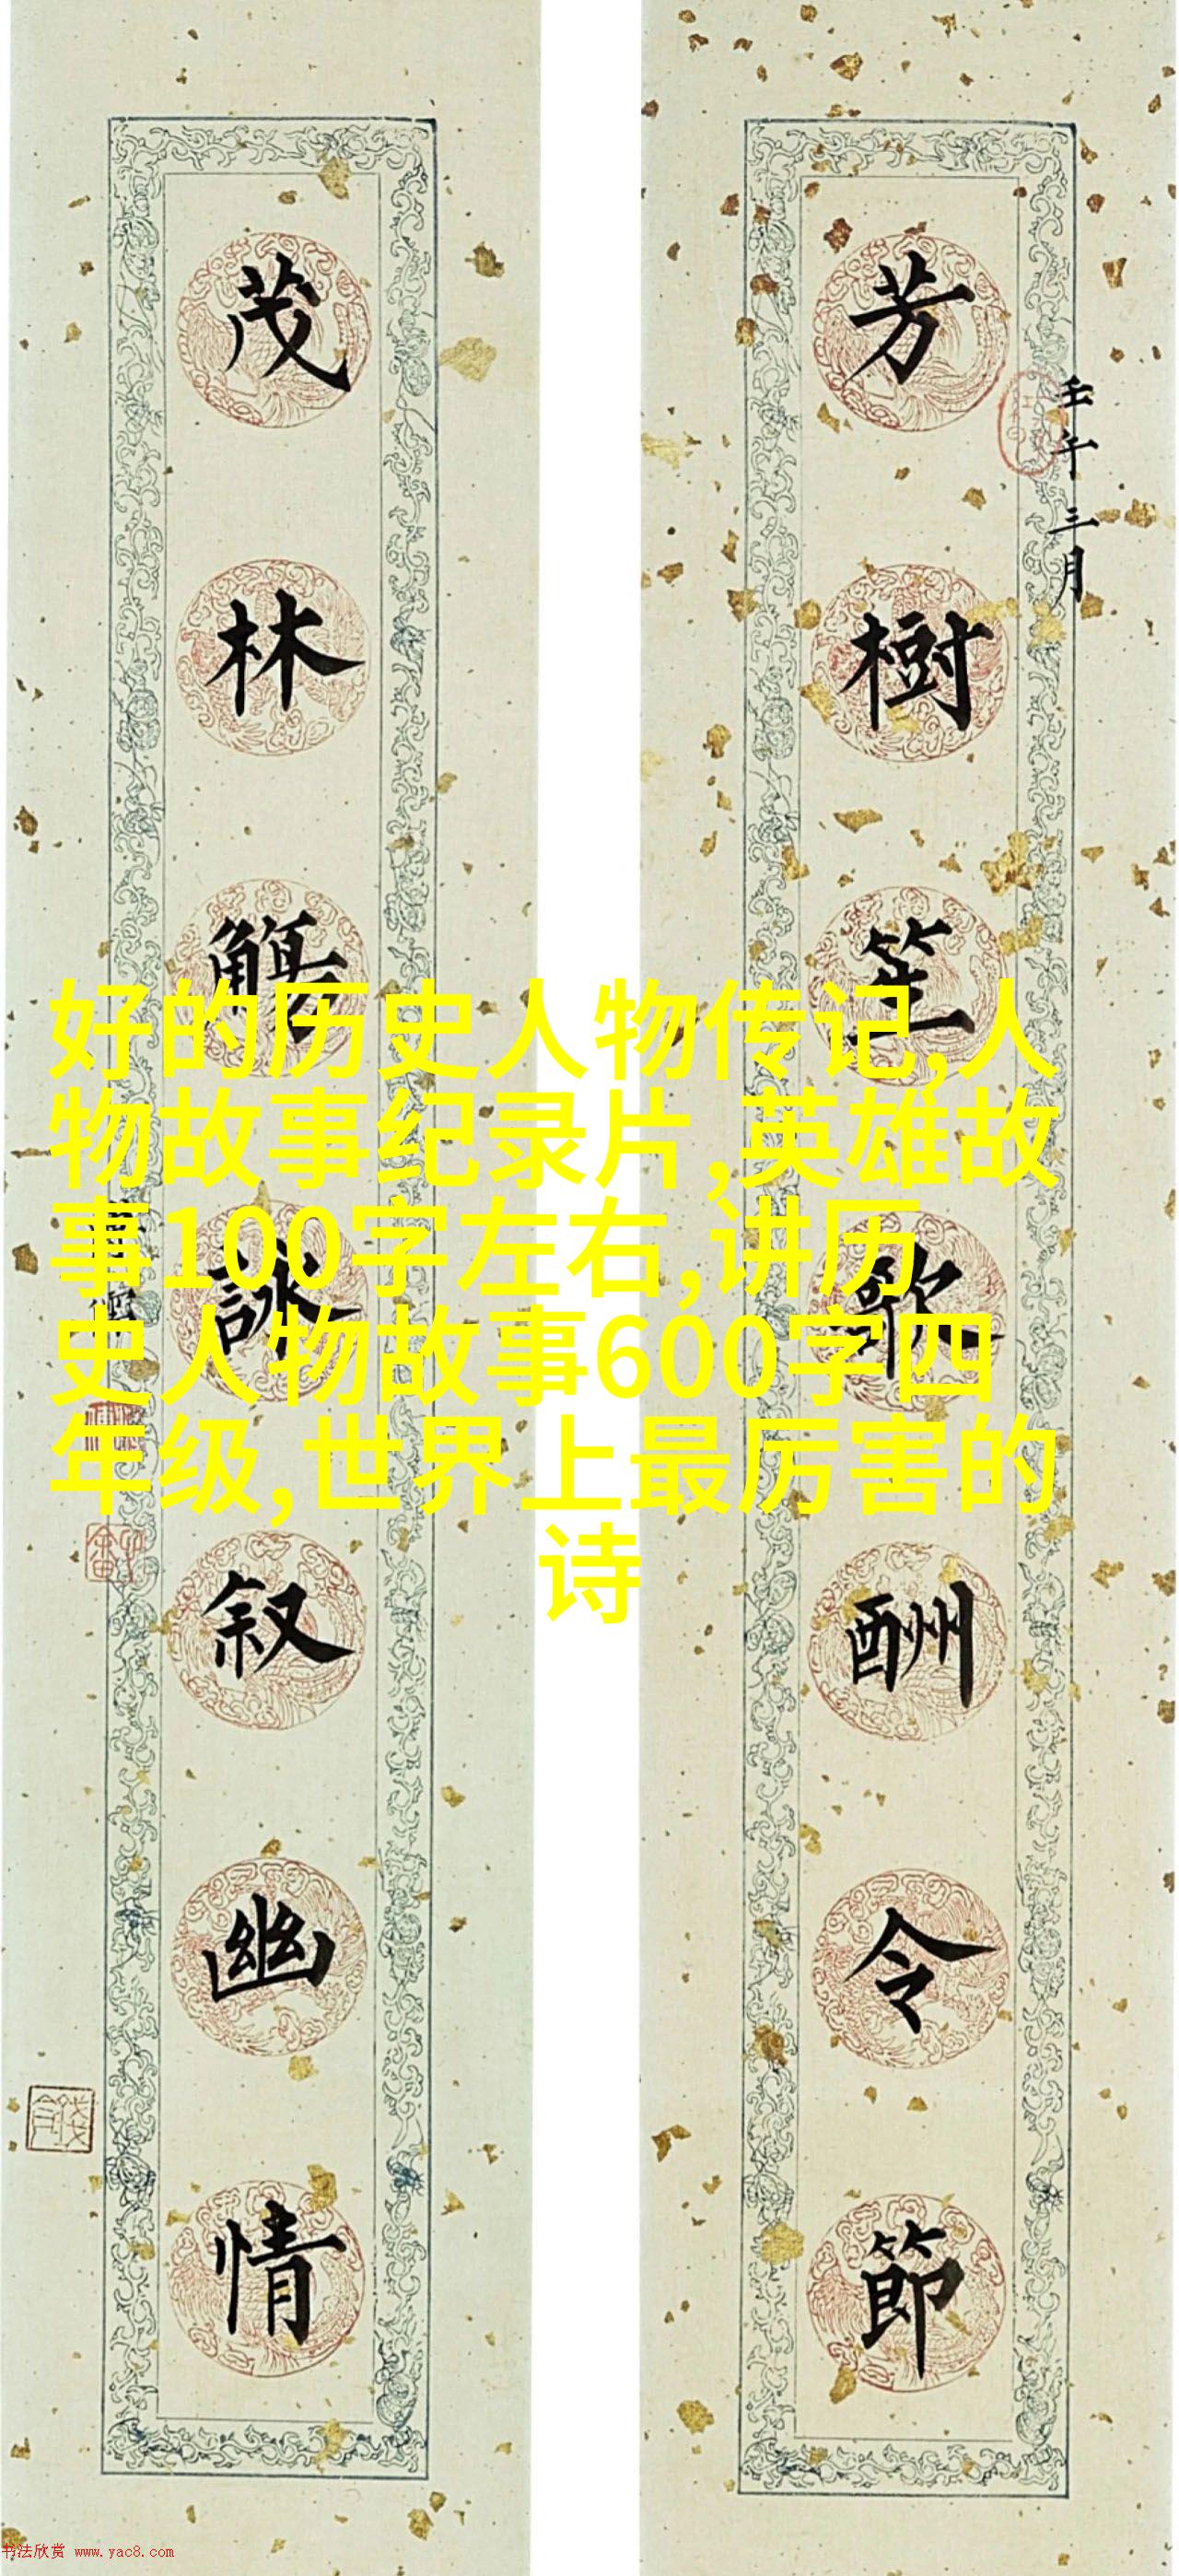 芳樹笙歌酬令節
壬午三月
茂林觴詠叙幽情
好的历史人物传记,人
物故事纪录片,英雄故
事100字左右,讲历
史人物故事600字四
年级,世界上最厉害的
诗
书法欣赏 www.yac8.com